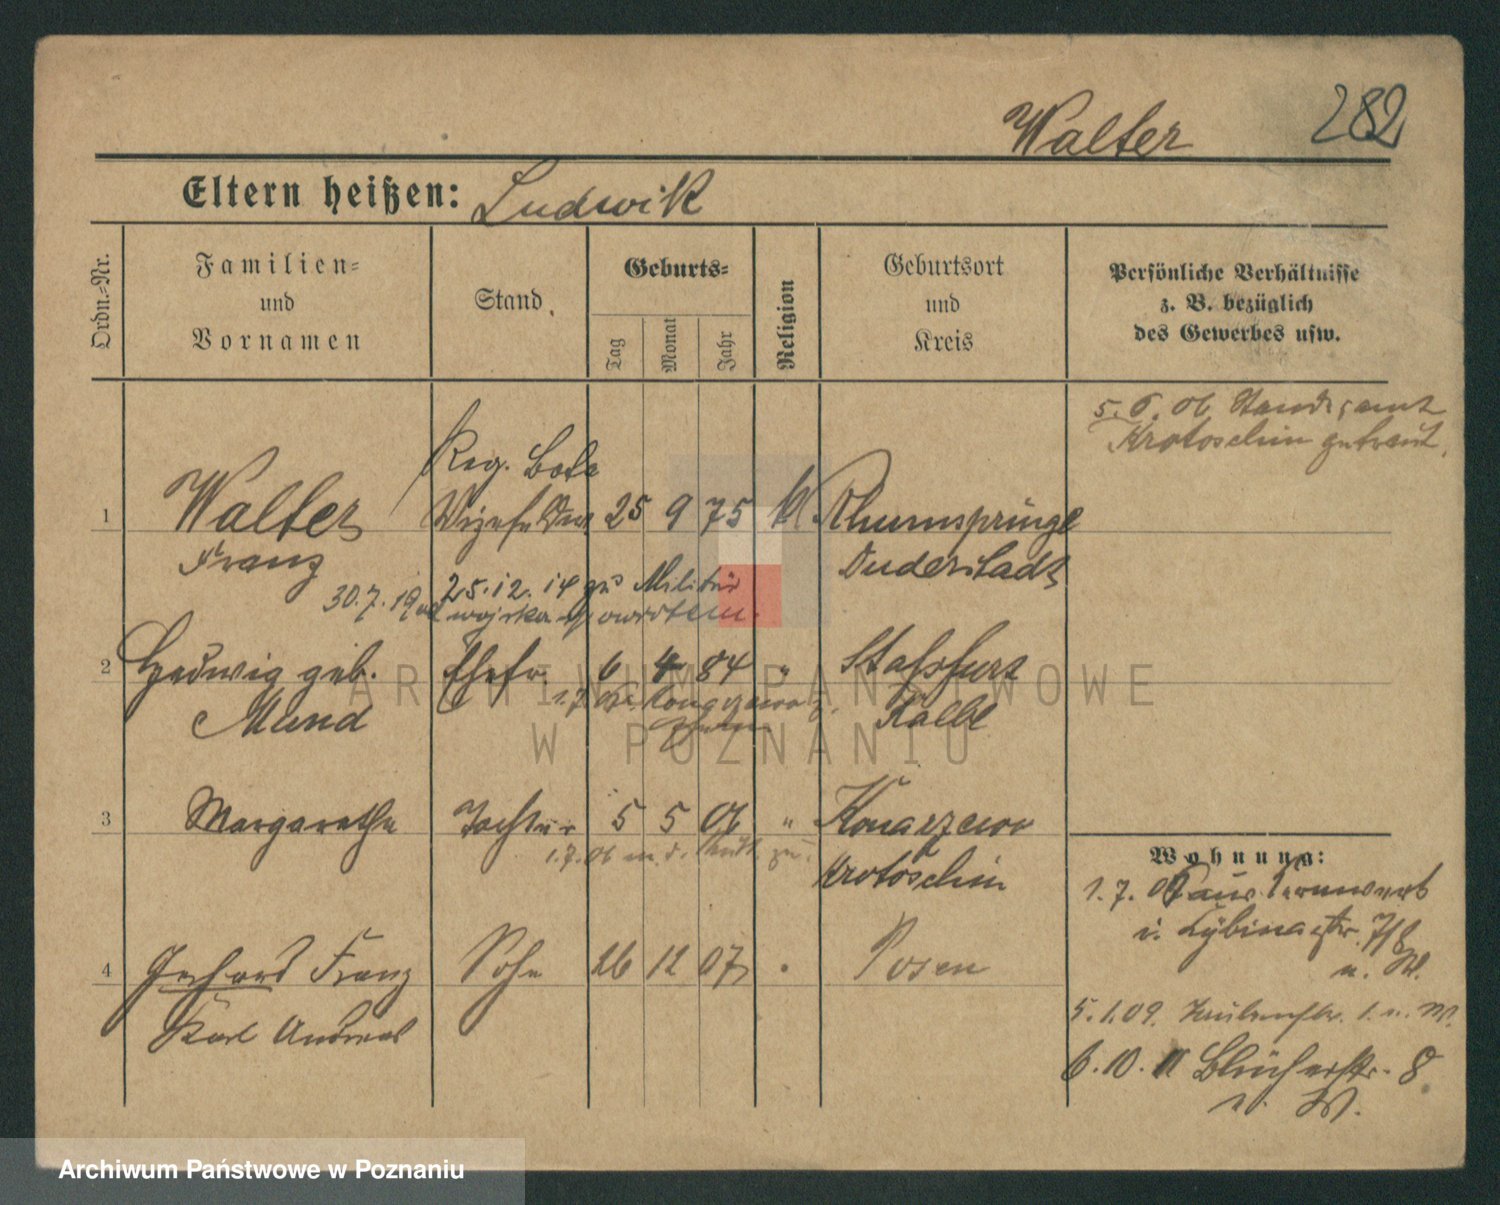 Walter 282
Eltern heißen: Ludwik
Ordn.-Nr.
Familien-
und
Vornamen
Stand.
Geburts-
Tag
Monat
Jahr
Religion
Geburtsort
und
Kreis
Persönliche Verhältnisse
z. B. bezüglich
des Gewerbes usw.
5. 6. 06 Standesamt
Krotoschin getraut.
Reg. Bote
1 Walter 25 9 75 Rhumspringe
Franz Duderstadt
25.12.14 zu Militär
30.7.19
2 Hedwig geb. Ehefr. 6 4 84 " Stassfurt
Mund Kalbe
3 Margarethe Tochter 5 5 06 " Konarzewo
1.7.06
Krotoschin
Wohnung:
1. 7. 07 aus
4 Gerhard Franz Sohn 26 12 07 Posen
Karl Andreas
5.1.09. 1. n. W.
6.10.11 Blücherstr. 8
n. W.
ARCHIWUM PAŃSTWOWE
W POZNANIU
Archiwum Państwowe w Poznaniu